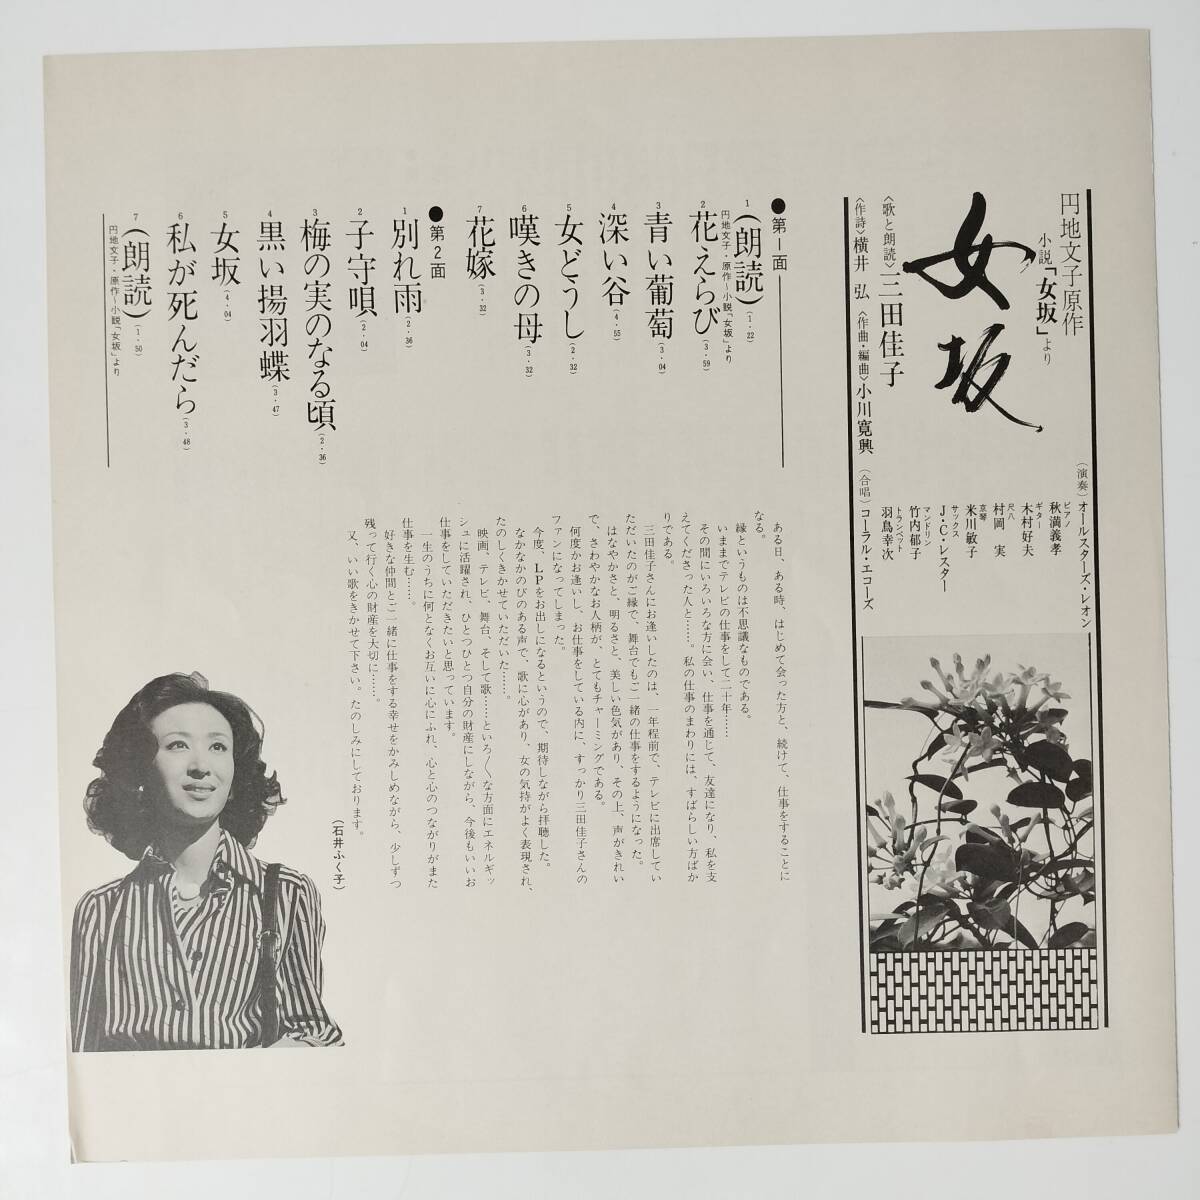 円地文子原作
小説「女坂」より
女坂
〈歌と朗読〉三田佳子
〈作詩〉横井 弘 〈作曲・編曲〉小川寛興
(演奏)オールスターズ・レオン
ピアノ
秋満義孝
ギター
木村好夫
尺八
村岡 実
京琴
米川敏子
サックス
J・C・レスター
マンドリン
竹内郁子
トランペット
羽鳥幸次
(合唱)コーラル・エコーズ
●第1面
1 (朗読)(1・22)
円地文子・原作〜小説「女坂」より
2 花えらび(3・59)
3 青い葡萄(3・04)
4 深い谷(4・55)
5 女どうし(2・32)
6 嘆きの母(3・32)
7 花嫁(3・32)
●第2面
1 別れ雨(2・36)
2 子守唄(2・04)
3 梅の実のなる頃(2・36)
4 黒い揚羽蝶(3・47)
5 女坂(4・04)
6 私が死んだら(3・48)
7 (朗読)(1・50)
円地文子・原作〜小説「女坂」より
ある日、ある時、はじめて会った方と、続けて、仕事をすることに
なる。
縁というものは不思議なものである。
いままでテレビの仕事をして二十年……
その間にいろいろな方に会い、仕事を通じて、友達になり、私を支
えてくださった人と……。私の仕事のまわりには、すばらしい方ばか
りである。
三田佳子さんにお逢いしたのは、一年程前で、テレビに出席してい
ただいたのがご縁で、舞台でもご一緒の仕事をするようになった。
はなやかさと、明るさと、美しい色気があり、その上、声がきれい
で、さわやかなお人柄が、とてもチャーミングである。
何度かお逢いし、お仕事をしている内に、すっかり三田佳子さんの
ファンになってしまった。
今度、LPをお出しになるというので、期待しながら拝聴した。
なかなかのびのある声で、歌に心があり、女の気持がよく表現され、
たのしくきかせていただいた……。
映画、テレビ、舞台、そして歌……といろ〱な方面にエネルギッ
シュに活躍され、ひとつひとつ自分の財産にしながら、今後もいいお
仕事をしていただきたいと思っています。
一生のうちに何となくお互いに心にふれ、心と心のつながりがまた
仕事を生む……。
好きな仲間とご一緒に仕事をする幸せをかみしめながら、少しずつ
残って行く心の財産を大切に……。
又、いい歌をきかせて下さい。たのしみにしております。
(石井ふく子)